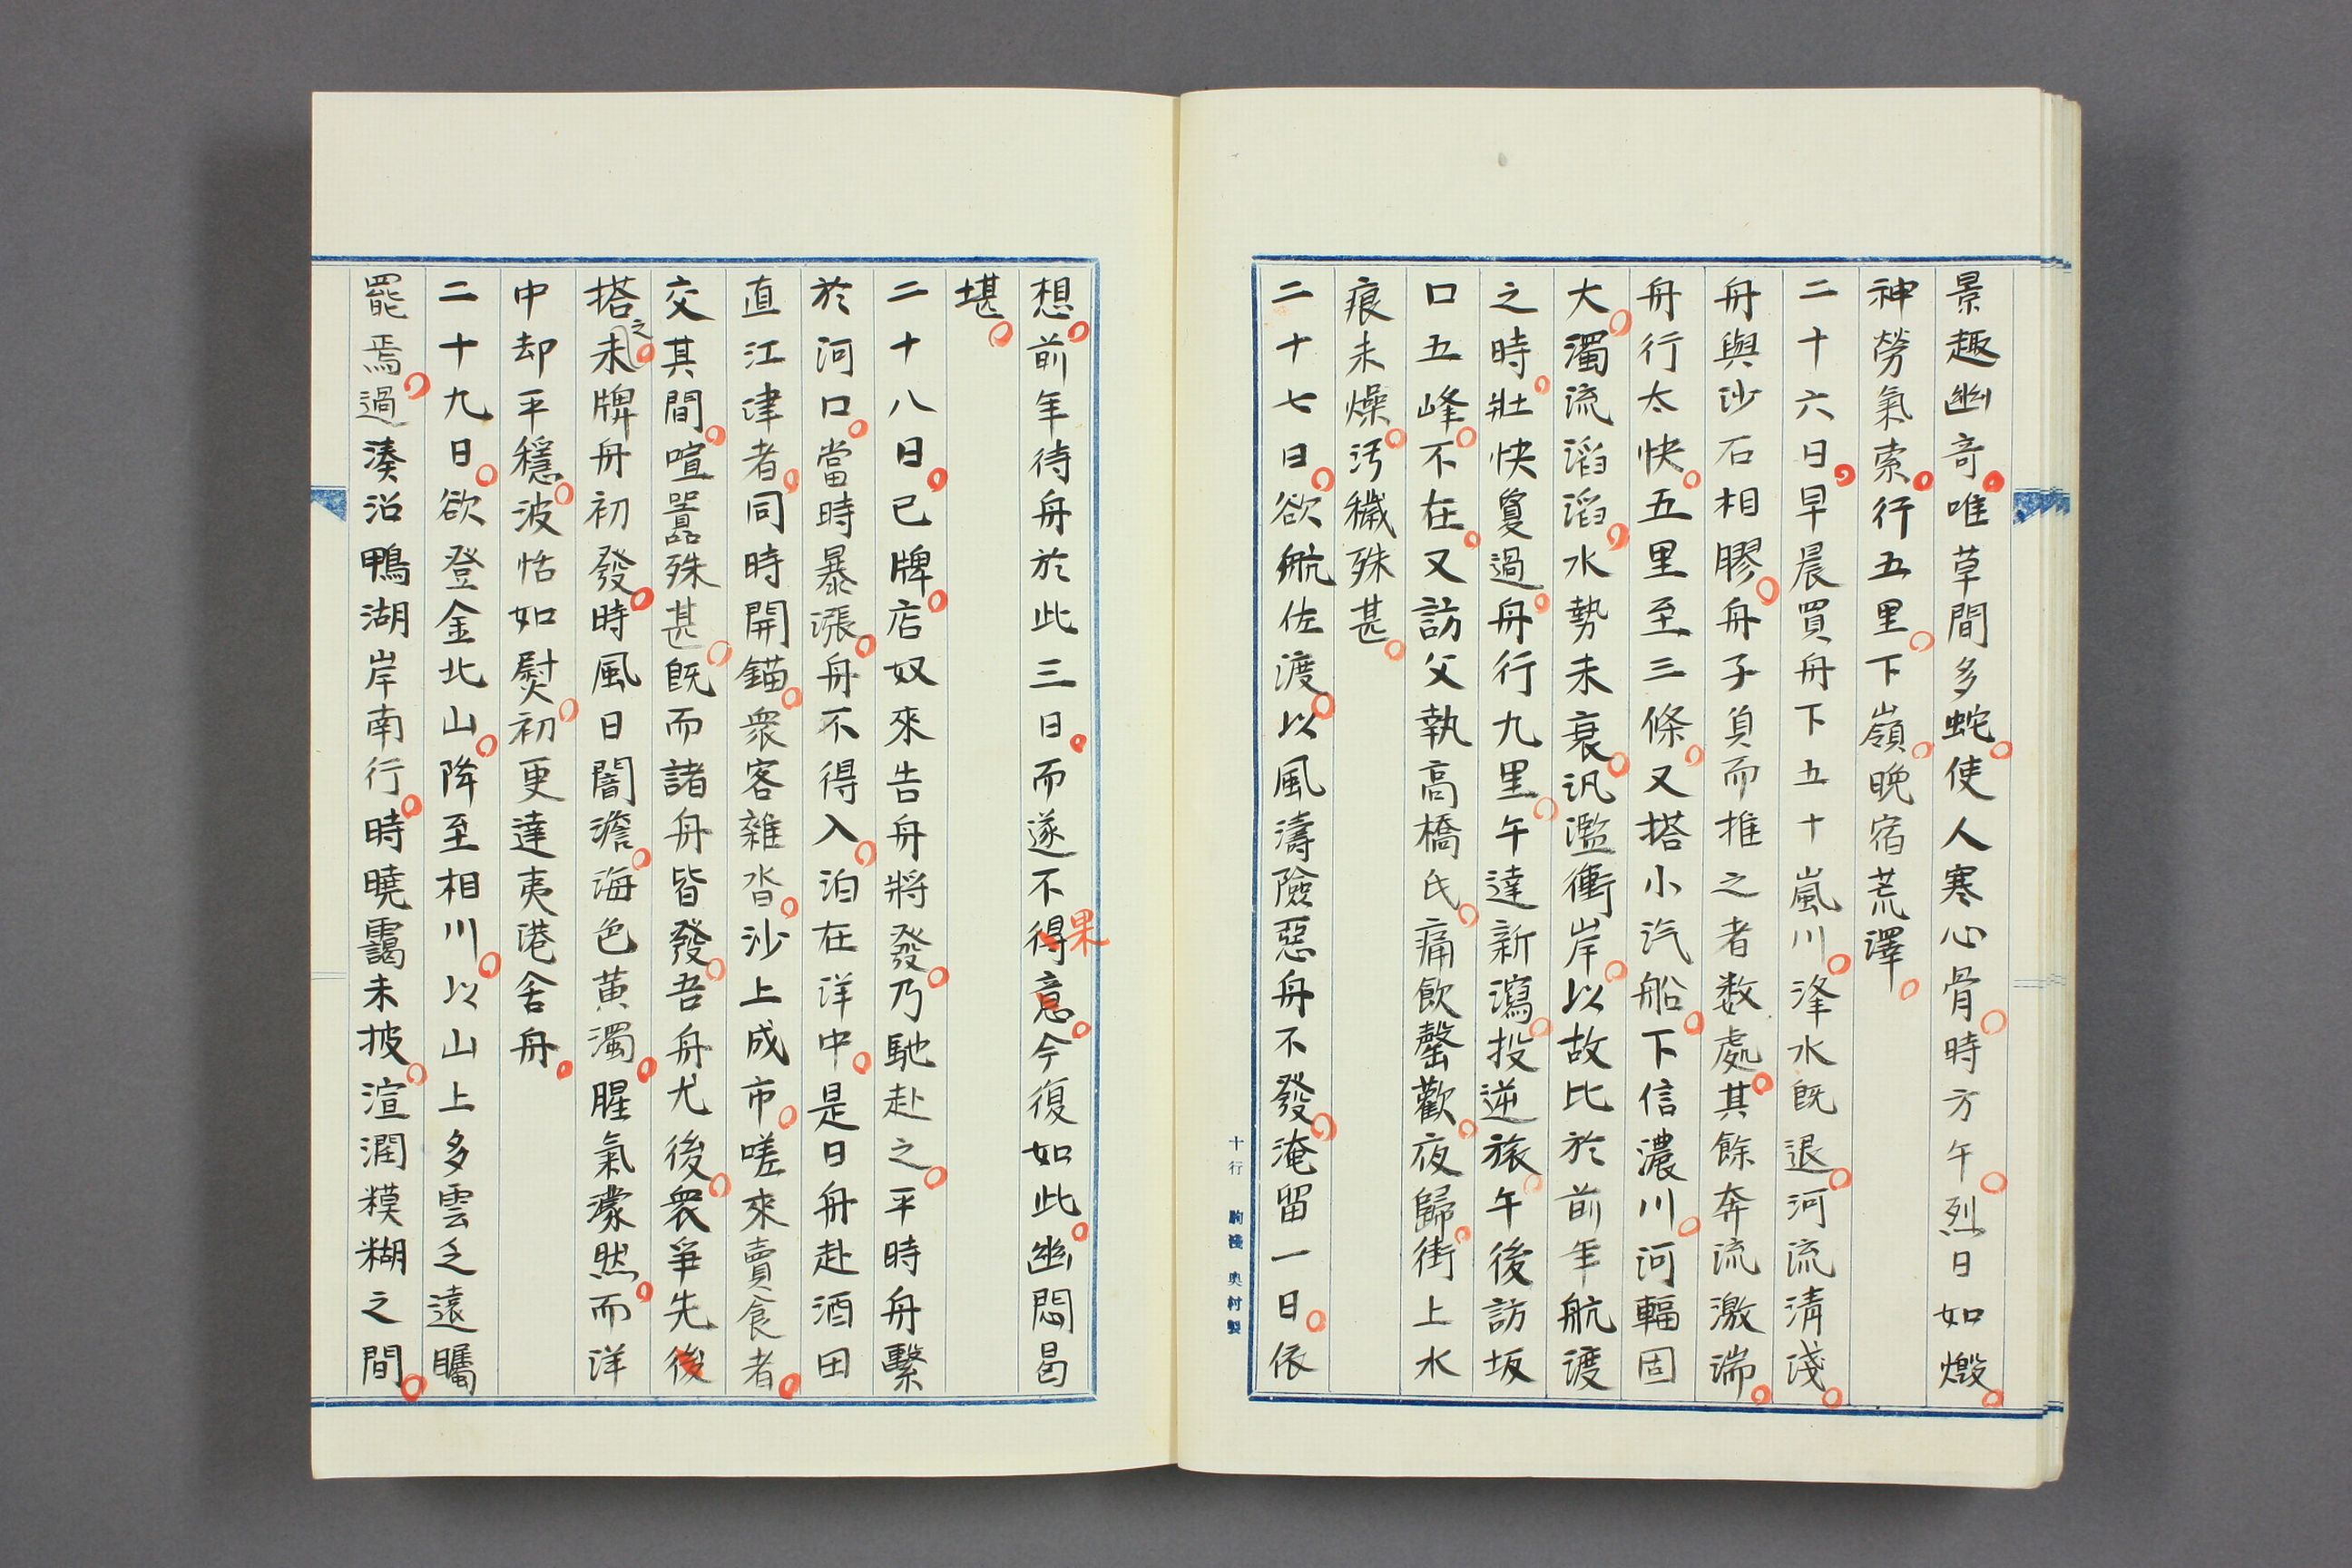 景趣幽奇。唯草間多蛇。使人寒心骨。時方午。烈日如燬。
神勞氣索。行五里。下嶺。晩宿荒澤。
二十六日。早晨買舟下五十嵐川。洚水既退。河流清淺。
舟與沙石相膠。舟子負而推之者数處。其餘奔流激湍。
舟行太快。五里至三條。又搭小汽船。下信濃川。河輻固
大。濁流滔滔。水勢未衰。汎濫衝岸。以故比於前年航渡
之時。壯快敻過。舟行九里。午達新瀉。投逆旅。午後訪坂
口五峰。不在。又訪父執高橋氏。痛飲罄歡。夜歸。街上水
痕未燥。汚穢殊甚。
二十七日。欲航佐渡。以風濤險惡舟不發。淹留一日。依
十行 奧村製
想。前年待舟於此三日。而遂不得意。今復如此。幽悶曷
果
堪。
二十八日。已牌。店奴來告舟將發。乃馳赴之。平時舟繫
於河口。當時暴漲。舟不得入。泊在洋中。是日舟赴酒田
直江津者。同時開錨。衆客雜沓。沙上成市。嗟來賣食者。
交其間。喧囂殊甚。既而諸舟皆發。吾舟尤後。衆爭先後
搭之。未牌舟初發。時風日闇澹。海色黄濁。腥氣濛然。而洋
中却平穩。波恬如熨。初更達夷港舍舟。
二十九日。欲登金北山。降至相川。以山上多雲乏遠矚
罷焉。過湊沿鴨湖岸南行。時曉靄未披。渲潤糢糊之間。